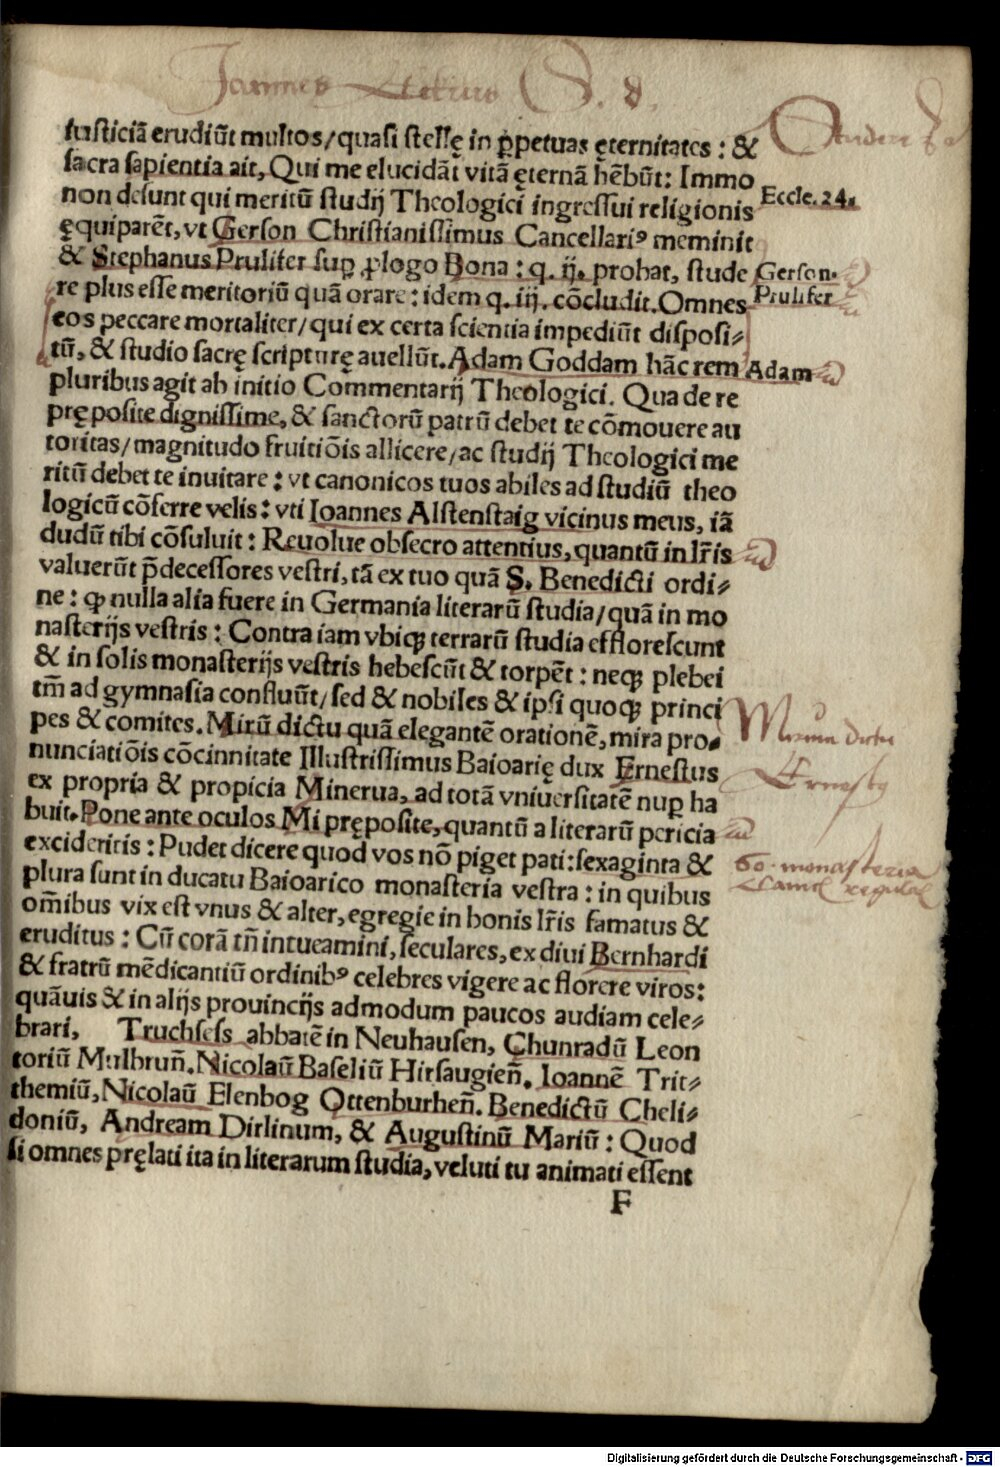 Joannes Eckius S. d.
iusticiã erudiũt multos/quasi stellę in ꝑpetuas ęternitates : &
sacra sapientia ait, Qui me elucidãt vitã ęternã hẽbũt: Immo
Eccle. 24.
non desunt qui meritũ studij Theologici ingressui religionis
ęquiparẽt, vt Gerson Christianissimus Cancellariꝰ meminit
& Stephanus Prulifer suꝑ ꝓlogo Bona : q. ij. probat, stude
Gerson.
re plus esse meritoriũ quã orare : idem q. iij. cõcludit. Omnes
Prulifer
eos peccare mortaliter/ qui ex certa scientia impediũt disposi⸗
tũ, & studio sacrę scripturę auellũt. Adam Goddam hãc rem
Adam
pluribus agit ab initio Commentarij Theologici. Qua de re
pręposite dignissime, & sanctorũ patrũ debet te cõmouere au
toritas/ magnitudo fruitiõis allicere/ ac studij Theologici me
ritũ debet te inuitare : vt canonicos tuos abiles ad studiũ theo
logicũ cõferre velis : vti Ioannes Alstenstaig vicinus meus, iã
dudũ tibi cõsuluit : Reuolue obsecro attentius, quantũ in lr̃is
valuerũt p̃decessores vestri, tã ex tuo quã S. Benedicti ordi⸗
ne : ꝙ nulla alia fuere in Germania literarũ studia/ quã in mo
nasterijs vestris : Contra iam vbiqꝫ terrarũ studia efflorescunt
& in solis monasterijs vestris hebescũt & torpẽt : neqꝫ plebei
tm̃ ad gymnasia confluũt/ sed & nobiles & ipsi quoqꝫ princi
pes & comites. Mirũ dictu quã elegantẽ orationẽ, mira pro⸗
Mirum dictu
nunciatiõis cõcinnitate Illustrissimus Baioarię dux Ernestus
Ernestus
ex propria & propicia Minerua, ad totã vniuersitatẽ nuꝑ ha
buit. Pone ante oculos Mi pręposite, quantũ a literarũ pericia
excideritis : Pudet dicere quod vos nõ piget pati : sexaginta &
60. monasteria
plura sunt in ducatu Baioarico monasteria vestra : in quibus
om̃ibus vix est vnus & alter, egregie in bonis lr̃is famatus &
eruditus : Cũ corã tñ intueamini, seculares, ex diui Bernhardi
& fratrũ mẽdicantiũ ordinibꝰ celebres vigere ac florere viros:
quãuis & in alijs prouincijs admodum paucos audiam cele⸗
brari, Truchsess abbatẽ in Neuhausen, Chunradũ Leon
toriũ Mulbruñ. Nicolaũ Baseliũ Hirsaugieñ. Ioannẽ Trit⸗
themiũ, Nicolaũ Elenbog Ottenburheñ. Benedictũ Cheli⸗
doniũ, Andream Dirlinum, & Augustinũ Mariũ : Quod
si omnes pręlati ita in literarum studia, veluti tu animati essent
F
Digitalisierung gefördert durch die Deutsche Forschungsgemeinschaft - DFG